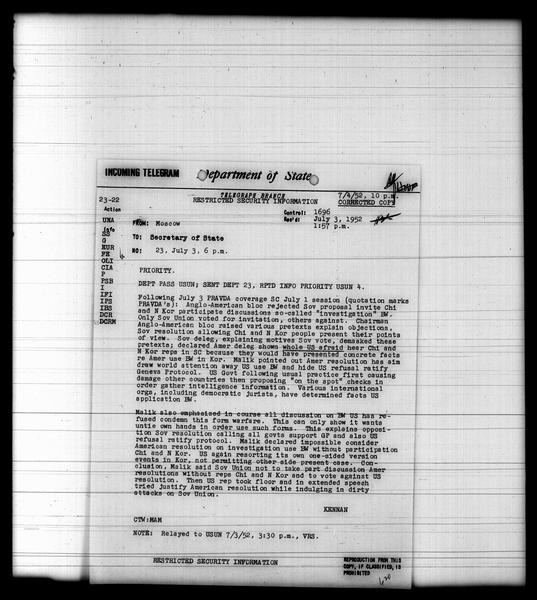 INCOMING TELEGRAM
Department of State
TELEGRAPH BRANCH
7/4/52, 10 p.m.
23-22
RESTRICTED SECURITY INFORMATION
CORRECTED COPY
Action
Control: 1696
UNA
Rec'd: July 3, 1952
FROM: Moscow
1:57 p.m.
Info
SS
TO: Secretary of State
G
EUR
NO: 23, July 3, 6 p.m.
FE
OLI
CIA
P
PSB
I
IFI
IPS
IBS
DCR
DCRM
PRIORITY.
DEPT PASS USUN; SENT DEPT 23, RPTD INFO PRIORITY USUN 4.
Following July 3 PRAVDA coverage SC July 1 session (quotation marks
PRAVDA's): Anglo-American bloc rejected Sov proposal invite Chi
and N Kor participate discussions so-called "investigation" BW.
Only Sov Union voted for invitation, others against. Chairman
Anglo-American bloc raised various pretexts explain objections.
Sov resolution allowing Chi and N Kor people present their points
of view. Sov deleg, explaining motives Sov vote, demasked these
pretexts; declared Amer deleg shown whole US afraid hear Chi and
N Kor reps in SC because they would have presented concrete facts
re Amer use BW in Kor. Malik pointed out Amer resolution has aim
draw world attention away US use BW and hide US refusal ratify
Geneva Protocol. US Govt following usual practice first causing
damage other countries then proposing "on the spot" checks in
order gather intelligence information. Various international
orgs, including democratic jurists, have determined facts US
application BW.
Malik also emphasized in course all discussion on BW US has re-
fused condemn this form warfare. This can only show it wants
untie own hands in order use such forms. This explains opposi-
tion Sov resolution calling all govts support GP and also US
refusal ratify protocol. Malik declared impossible consider
American resolution on investigation use BW without participation
Chi and N Kor. US again resorting its own one-sided version
events in Kor, not permitting other side present case. Con-
clusion, Malik said Sov Union not to take part discussion Amer
resolutions without reps Chi and N Kor and to vote against US
resolution. Then US rep took floor and in extended speech
tried justify American resolution while indulging in dirty
attacks on Sov Union.
KENNAN
CTW:MAM
NOTE: Relayed to USUN 7/3/52, 3:30 p.m., VRS.
RESTRICTED SECURITY INFORMATION
REPRODUCTION FROM THIS
COPY, IF CLASSIFIED, IS
PROHIBITED